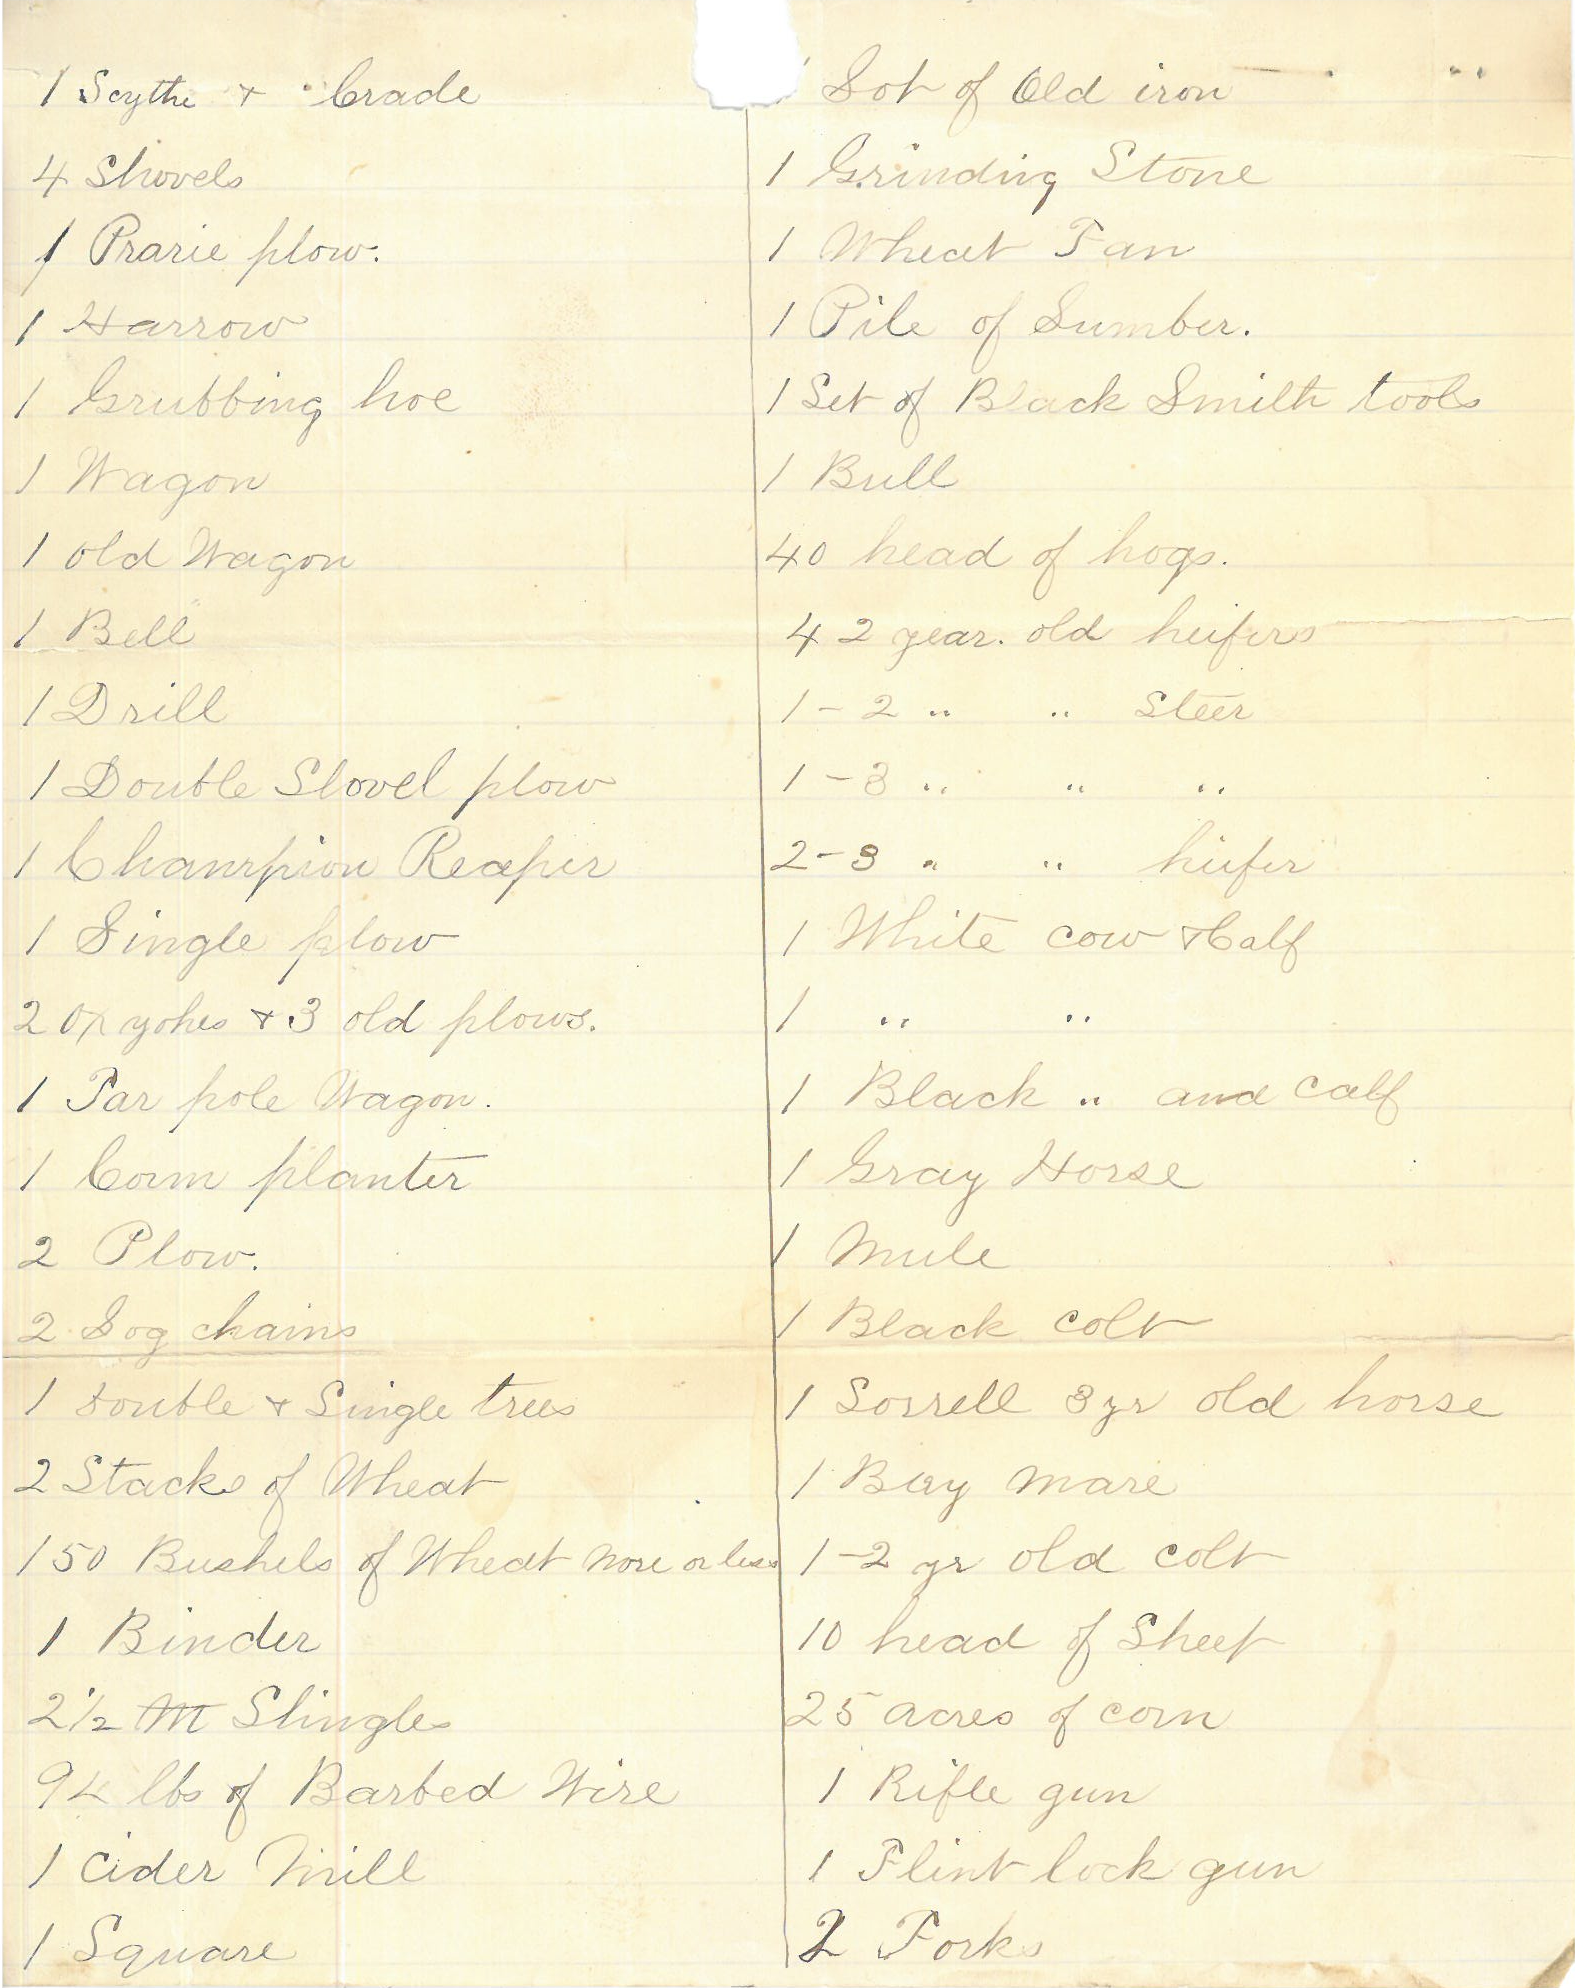 1 Scythe + Crade
4 Shovels
1 Prarie plow.
1 Harrow
1 Grubbing hoe
1 Wagon
1 old Wagon
1 Bell
1 Drill
1 Double Slovel plow
1 Champion Reaper
1 Single plow
2 ox yokes + 3 old plows.
1 Tar pole Wagon.
1 Corn planter
2 Plow.
2 Log chains
1 double + Single trees
2 Stacks of Wheat
150 Bushels of Wheat more or less
1 Binder
2 1/2 M Shingles
94 lbs of Barbed Wire
1 Cider Mill
1 Square
1 Lot of Old iron
1 Grinding Stone
1 Wheat Fan
1 Pile of Lumber.
1 Set of Black Smith tools
1 Bull
40 head of hogs.
4 2 year. old heifers
1 - 2 " " Steer
1 - 3 " " "
2 - 3 " " heifer
1 White cow + Calf
1 " "
1 Black " and calf
1 Gray Horse
1 Mule
1 Black colt
1 Sorrell 3 yr old horse
1 Bay mare
1 - 2 yr old colt
10 head of Sheep
25 acres of corn
1 Rifle gun
1 Flint lock gun
2 Forks